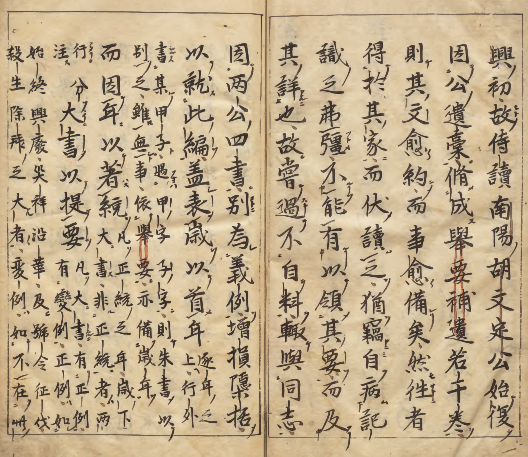 興初故侍讀南陽胡文定公始復
因公遺藁脩成舉要補遺若干卷
則其文愈約而事愈備矣然往者
得於其家而伏讀之猶竊自病記
識之弗彊不能有以領其要而及
其詳也故嘗過不自料輒與同志
因兩公四書別為義例增損檃括
以就此編蓋表歲以首年逐年之上行外
書某甲子遇甲字子字則朱書以
別之雖無事依舉要亦備歲年
而因年以著統凡正統之年歲下大書非正統者兩
行分注大書以提要凡大書有正例有變例正例如
始終興廢災祥沿革及號令征伐
殺生除拜之大者變例如不在此